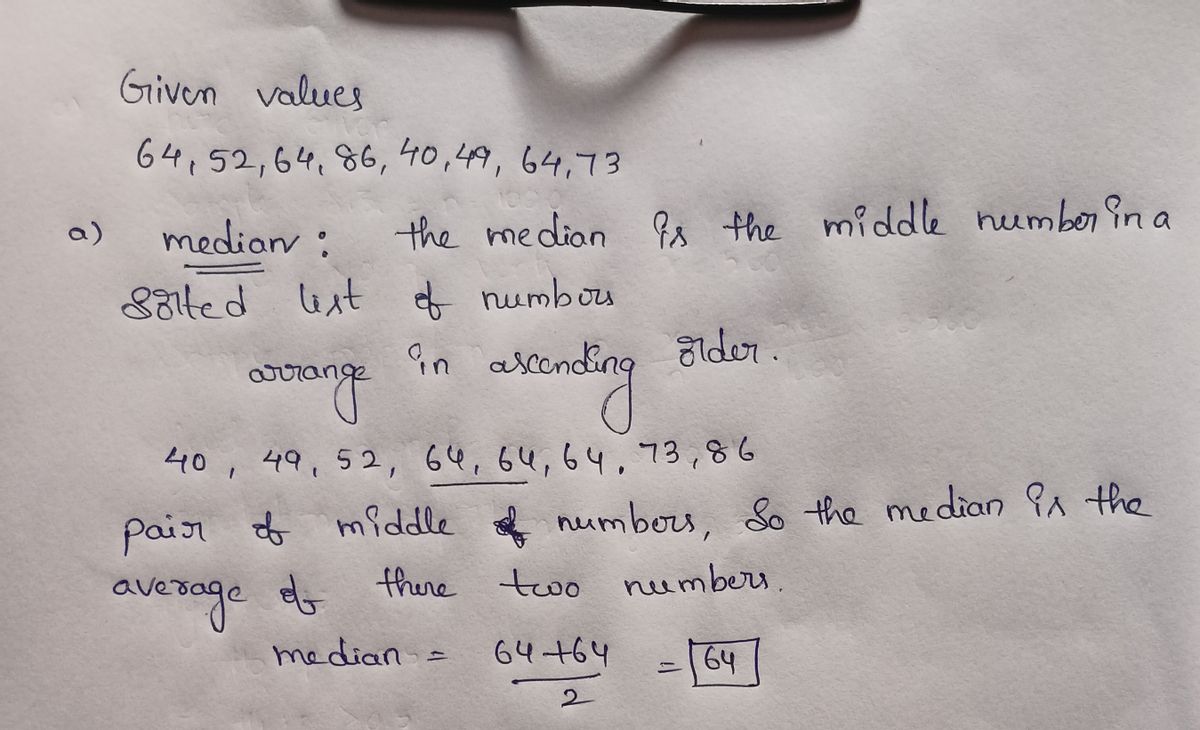 Given values
64, 52, 64, 86, 40, 49, 64, 73
a) median : the median is the middle number in a
sorted list of numbers
arrange in ascending order.
40, 49, 52, 64, 64, 64, 73, 86
pair of middle numbers, So the median is the
average of there two numbers.
median = 64+64 / 2 = 64